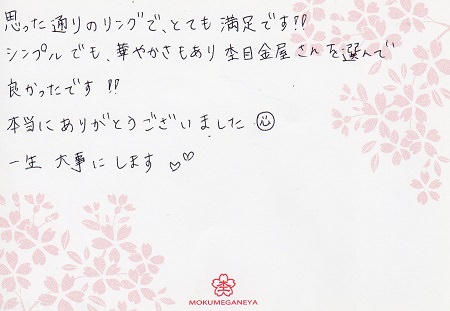 思った通りのリングで、とても満足です!!
シンプルでも、華やかさもあり杢目金屋さんを選んで
良かったです!!
本当にありがとうございました
一生大事にします♡♡
MOKUMEGANEYA